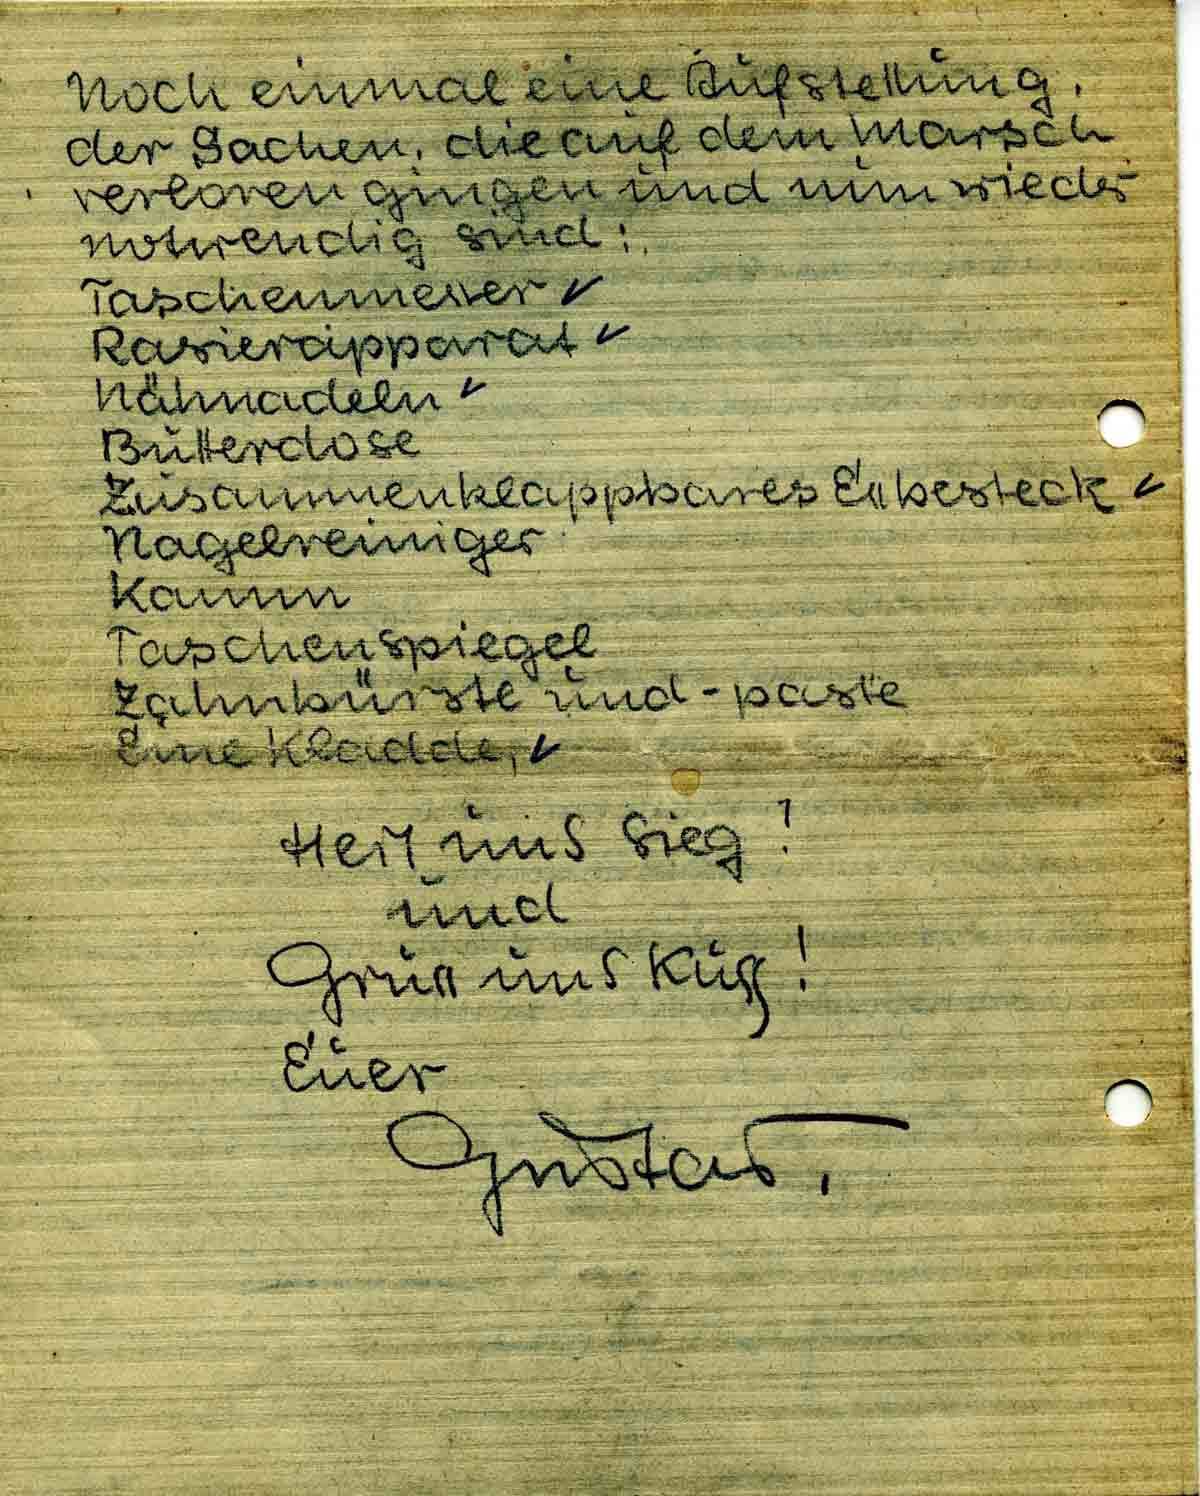 Noch einmal eine Aufstellung,
der Sachen, die auf dem Marsch
verloren gingen und nun wieder
notwendig sind:
Taschenmesser ✓
Rasierapparat ✓
Nähnadeln ✓
Butterdose
Zusammenklappbares Essbesteck ✓
Nagelreiniger
Kamm
Taschenspiegel
Zahnbürste und -paste
Eine Kladde, ✓
Heil uns Sieg!
und
Gruss uns Kuss!
Euer
Gustav.